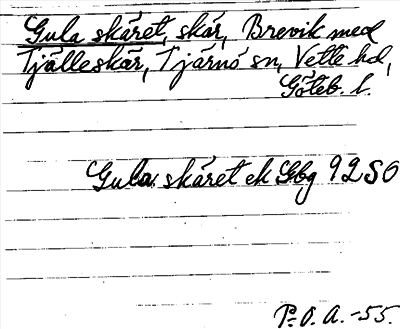 Gula skäret, skär, Brevik med
Tjälleskär, Tjärnö sn, Vette hd,
Göteb. l.
Gula skäret ek Gbg 92 SO
P. O. A. -55.